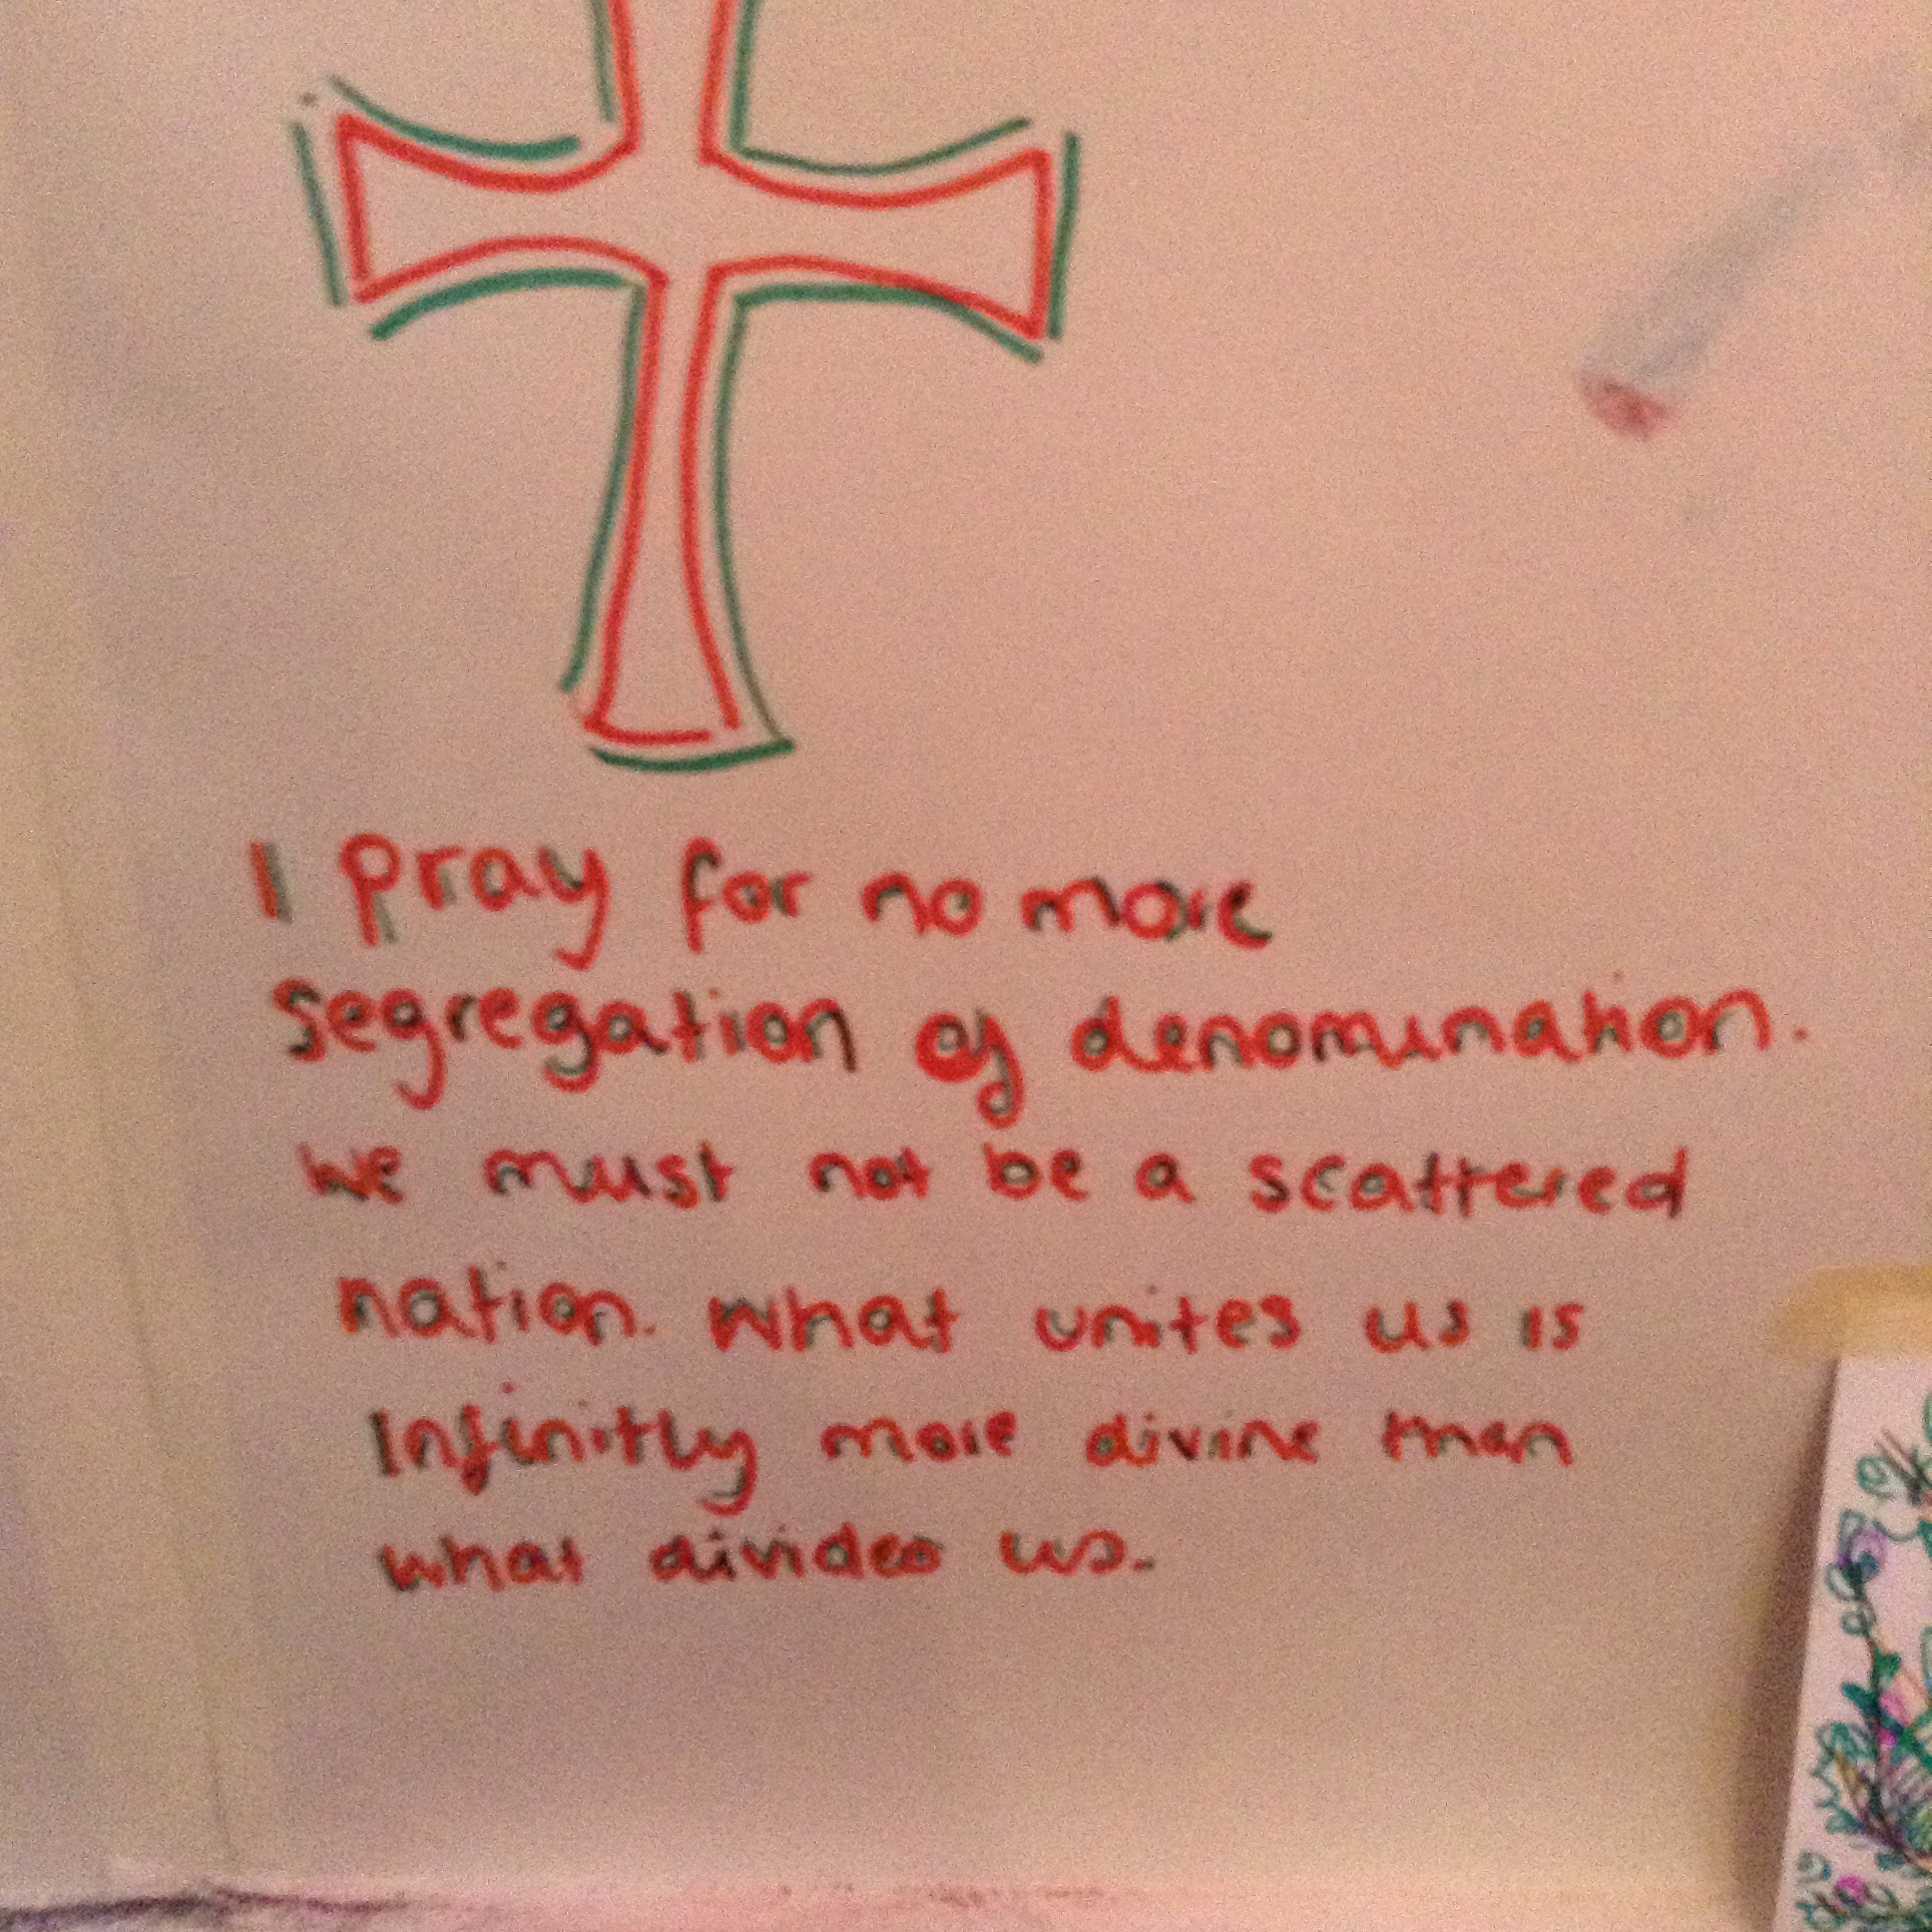 I pray for no more
segregation of denomination.
We must not be a scattered
nation. What unites us is
Infinitly more divine than
what divides us.